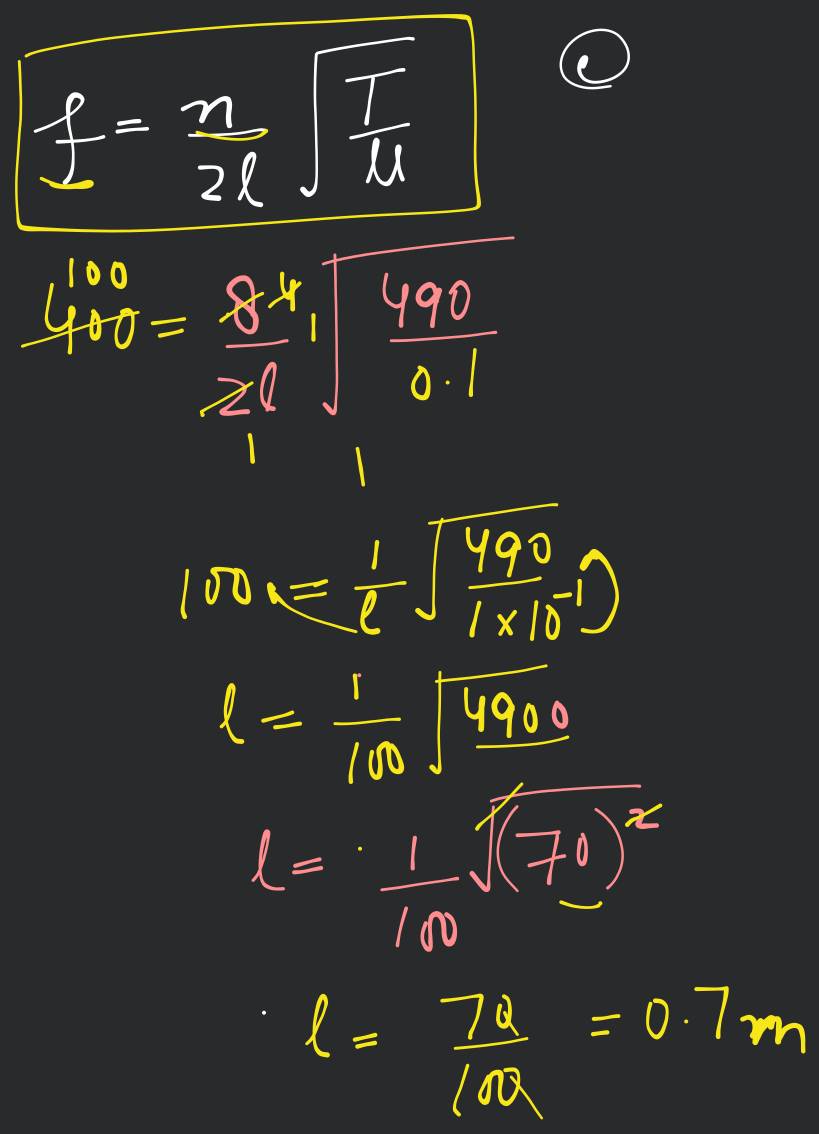 f = n/2l √(T/μ) e
100
400 = 8/2l 4 1 √(490/0.1)
1 1
100 = 1/l √(490/1×10⁻¹)
l = 1/100 √4900
l = 1/100 √(70)²
l = 70/100 = 0.7 m